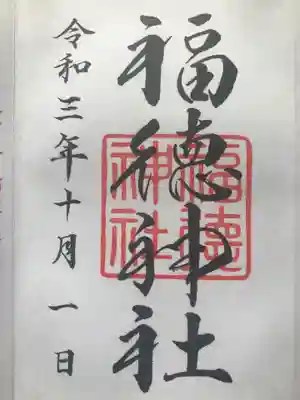 福徳神社
福徳神社
令和三年十月一日